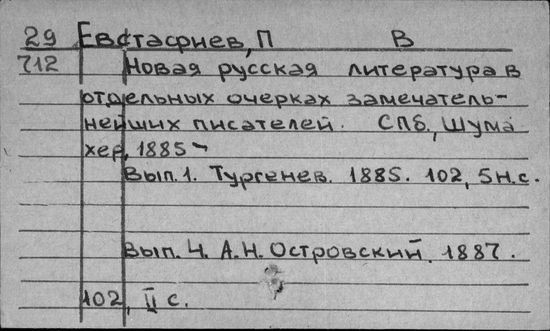 29 Евстафиев, П В
712 Новая русская литература в
отдельных очерках замечатель-
нейших писателей. СПб., Шума
хер, 1885 -
Вып. 1. Тургенев. 1885. 102, 5 н.с.
Вып. 4. А.Н. Островский. 1887.
102, II с.